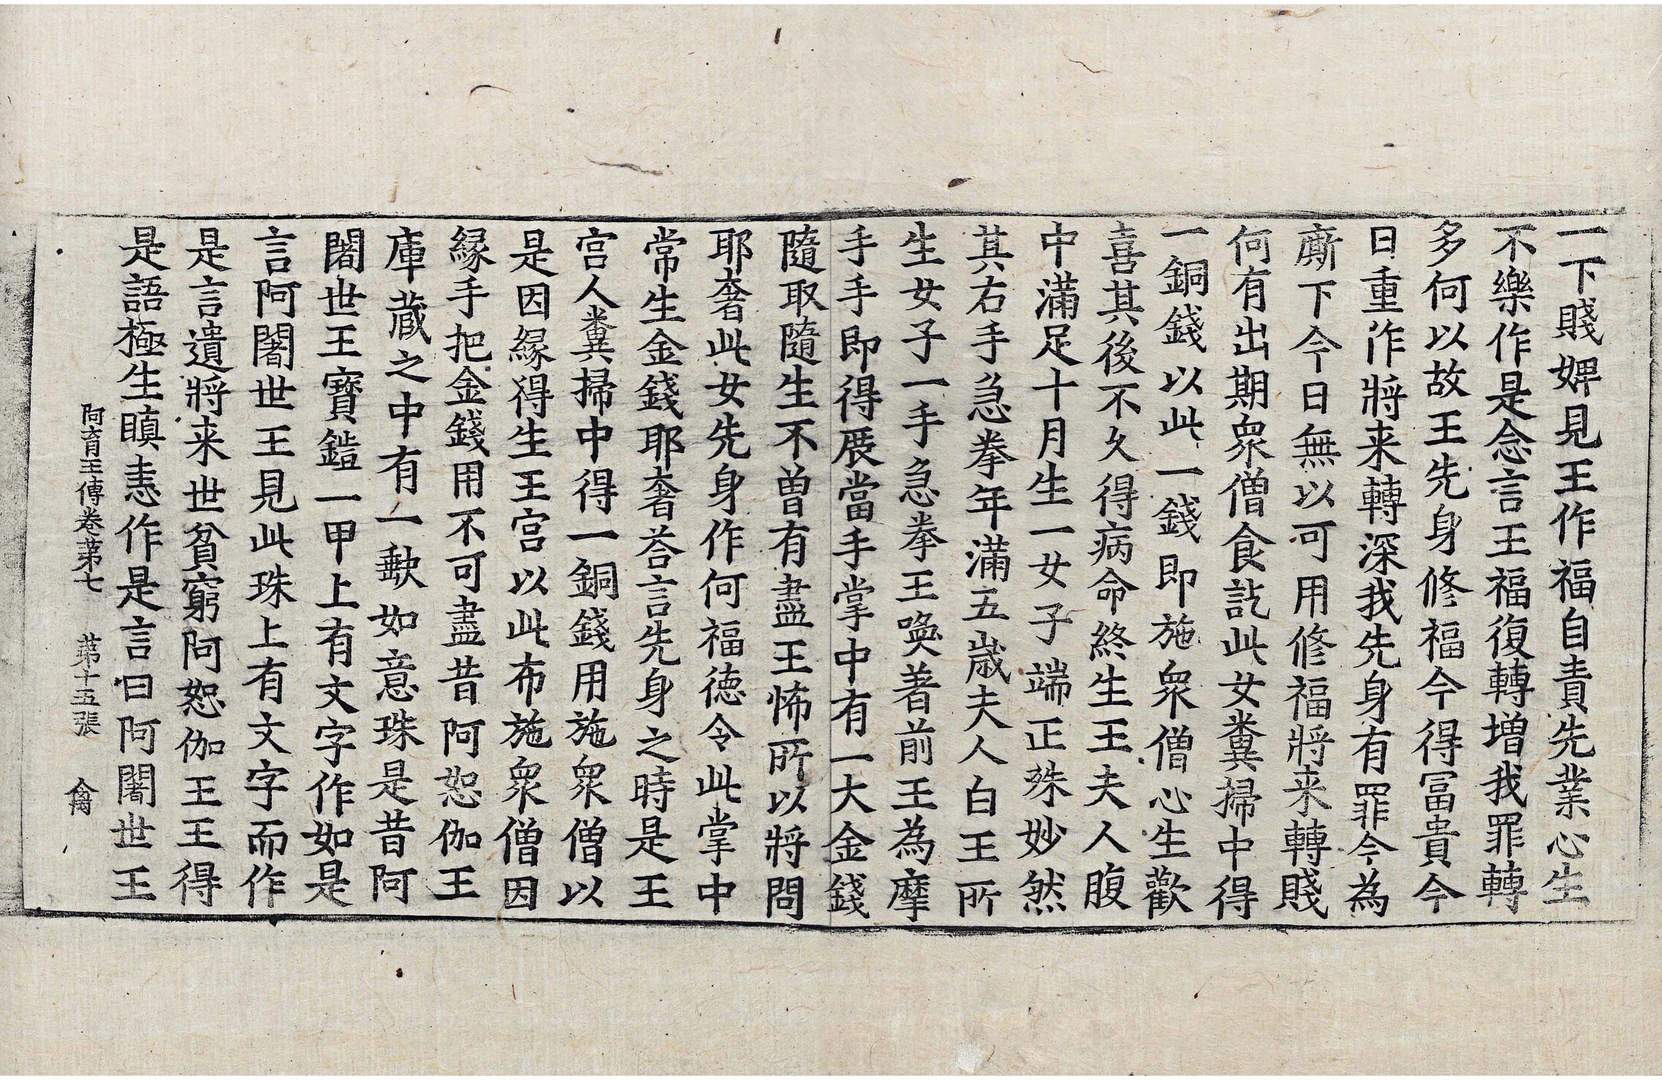 一下賤婢見王作福自責先業心生
不樂作是念言王福復轉增我罪轉
多何以故王先身修福今得冨貴今
日重作將来轉深我先身有罪今為
廝下今日無以可用修福將来轉賤
何有出期衆僧食訖此女糞掃中得
一銅錢以此一錢即施衆僧心生歡
喜其後不久得病命終生王夫人腹
中滿足十月生一女子端正殊妙然
其右手急拳年滿五歲夫人白王所
生女子一手急拳王喚著前王為摩
手手即得展當手掌中有一大金錢
隨取隨生不曾有盡王怖所以將問
耶奢此女先身作何福德令此掌中
常生金錢耶奢荅言先身之時是王
宮人糞掃中得一銅錢用施衆僧以
是因縁得生王宮以此布施衆僧因
縁手把金錢用不可盡昔阿恕伽王
庫藏之中有一歡如意珠是昔阿
闍世王寳鎧一甲上有文字作如是
言阿闍世王見此珠上有文字而作
是言遺將来世貧窮阿恕伽王王得
是語極生瞋恚作是言曰阿闍世王
阿育王傳卷苐七 苐十五張 禽